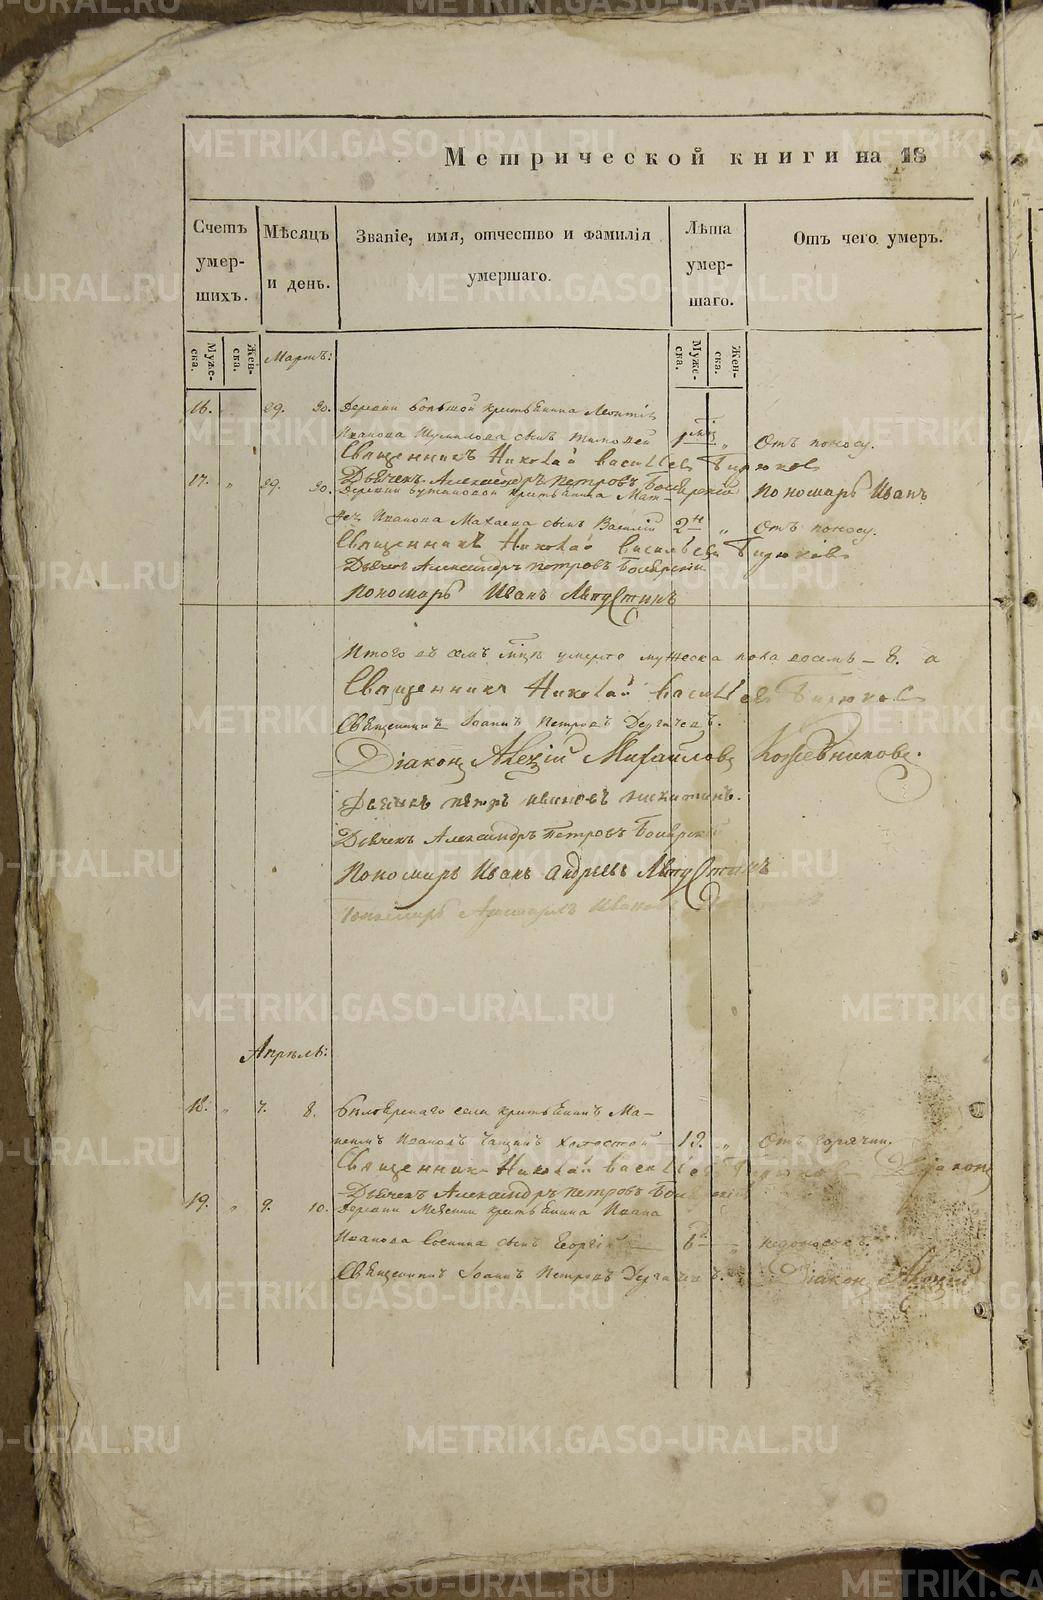 Метрической книги на 18
Счетъ умер-шихъ.
Мѣсяцъ и день.
Званіе, имя, отчество и фамилія умершаго.
Лѣта умер-шаго.
Отъ чего умеръ.
Муже-ска.
Жен-ска.
Муже-ска.
Жен-ска.
Мартъ:
16. " 29. 30. Деревни Большой крестьянина Леонтія
Иванова сынъ Тимофей " Отъ поносу.
Священникъ Николай Васильевъ Бирюковъ
Дьячекъ Александръ Петровъ Боярскій Пономарь Иванъ
17. " 29. 30. Деревни крестьянина Мат-
фея Иванова сынъ Василій 2 н " Отъ поносу.
Священникъ Николай Васильевъ Бирюковъ
Дьячекъ Александръ Петровъ Боярскій
Пономарь Иванъ Лапустинъ
Итого въ семъ мцѣ умерло мужеска пола восемь – 8. а
Священникъ Николай Васильевъ Бирюковъ
Священникъ Іоаннъ Петровъ Дергачевъ.
Діаконъ Алексій Михайловъ Кожевниковъ.
Дьячекъ Петръ Ивановъ Никитинъ.
Дьячекъ Александръ Петровъ Боярскій
Пономарь Иванъ Андреевъ Лапустинъ
Пономарь Иванов
Апрѣль:
18. " 7. 8. Бѣлоярскаго села крестьянинъ Ма-
Ивановъ холостой 13. " Отъ горячки.
Священникъ Николай Васильевъ Бирюковъ Діаконъ
Дьячекъ Александръ Петровъ Боярскій
19. " 9. 10. Деревни крестьянина Ивана
Иванова сынъ Георгій " недоносокъ.
Священникъ Іоаннъ Петровъ Дергачевъ. Діаконъ Алексій
METRIKI.GASO-URAL.RU